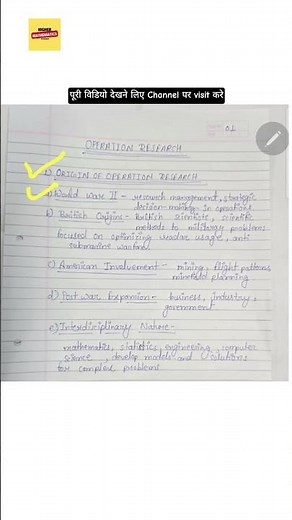 HIGHER
MATHEMATICS
पूरी विडियो देखने लिए Channel पर visit करे
01
OPERATION RESEARCH
1) ORIGIN OF OPERATION RESEARCH
a) World War II - research management, strategic
decision-making in operations
b) British Origins - British scientists, scientific
methods to military problems
focused on optimizing radar usage, anti
submarine warfare
c) American Involvement - mining, flight patterns
minefield planning
d) Post war Expansion - business, industry,
government
e) Interdiciplinary Nature -
mathematics, statistics, engineering, computer
science, develop models and solutions
for complex problems